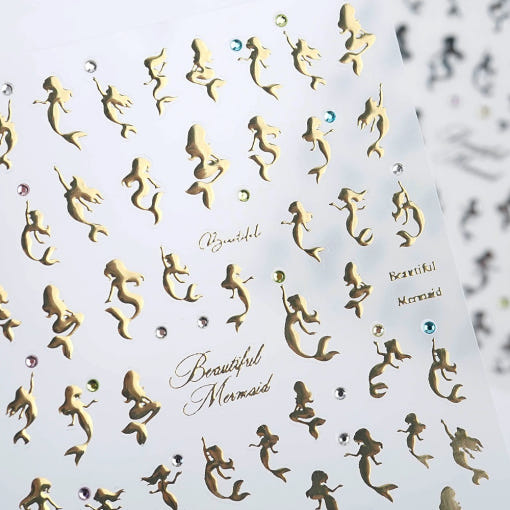 Beautiful
Beautiful
Mermaid
Beautiful
Mermaid